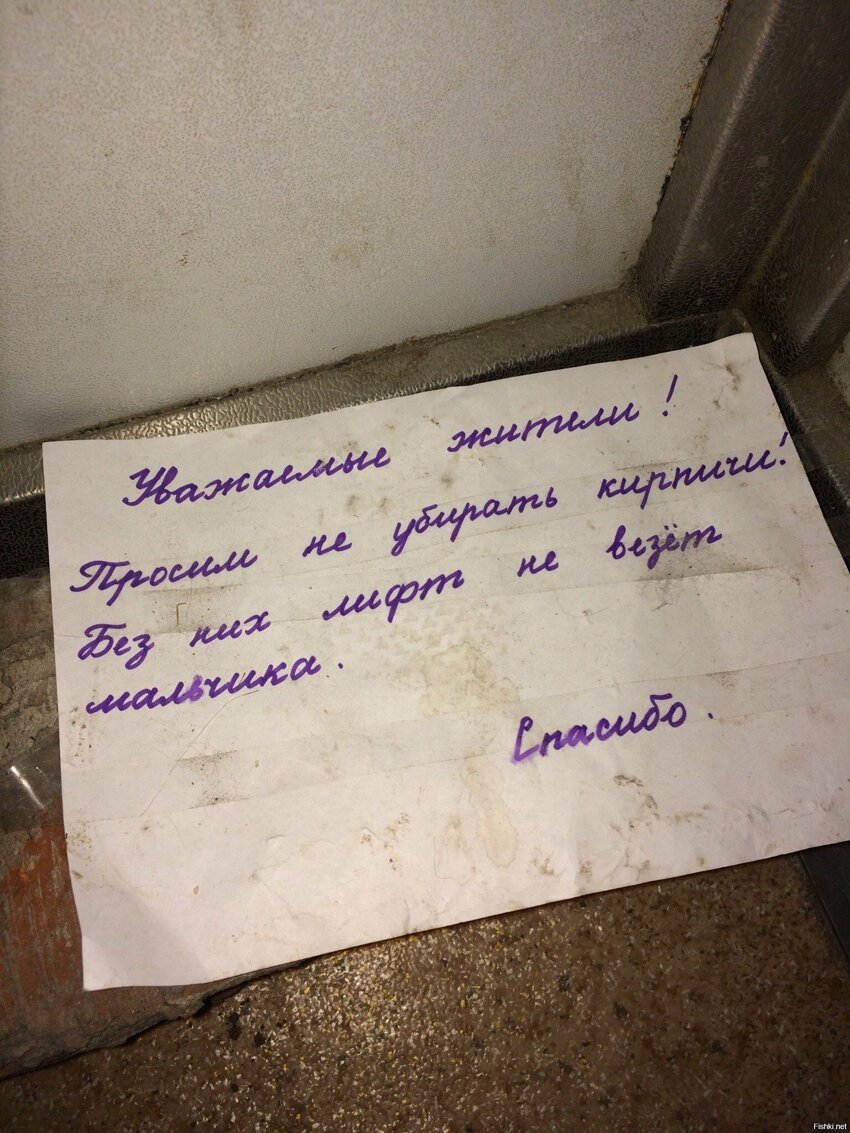 Уважаемые жители!
Просим не убирать кирпичи!
Без них лифт не везёт
мальчика.
Спасибо.
Fishki.net